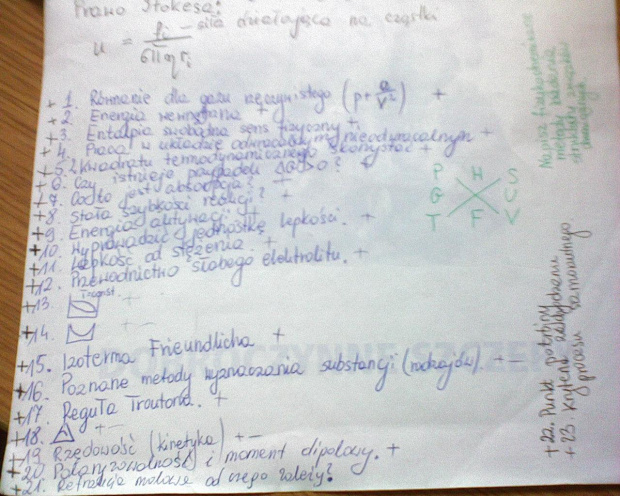 Prawo Stokesa:
u = fi / 6πηri – siła działająca na cząstki
+ 1. Równanie dla gazu rzeczywistego (p + a/V²) +
+ 2. Energia wewnętrzna +
+ 3. Entalpia swobodna sens fizyczny +
+ 4. Praca w układzie odwracalnym i nieodwracalnym +
+ 5. Z kwadratu termodynamicznego skorzystać +
+ 6. Czy istnieje przypadek ΔG>0? +
+ 7. Co to jest absorpcja? +
+ 8. Stała szybkości reakcji? +
+ 9. Energia aktywacji +
+ 10. Wyprowadzić jednostkę lepkości. +
+ 11. Lepkość od stężenia +
+ 12. Przewodnictwo słabego elektrolitu. +
+ 13. T=const. +
+ 14. + –
+ 15. Izoterma Frieundlicha +
+ 16. Poznane metody wyznaczania substancji (rodzajów). + –
+ 17. Reguła Troutona. +
+ 18. + –
+ 19. Rzędowość (kinetyka) + –
+ 20. Polaryzowalność i moment dipolowy. +
+ 21. Refrakcja molowa od czego zależy?
P H S
G U
T F V
Napisz fizykochemiczne
metody badania
struktury związków
+ 22. Punkt potrójny
+ 23. Kryteria
procesu samorzutnego
DOBROCZYNNE SZCZEP